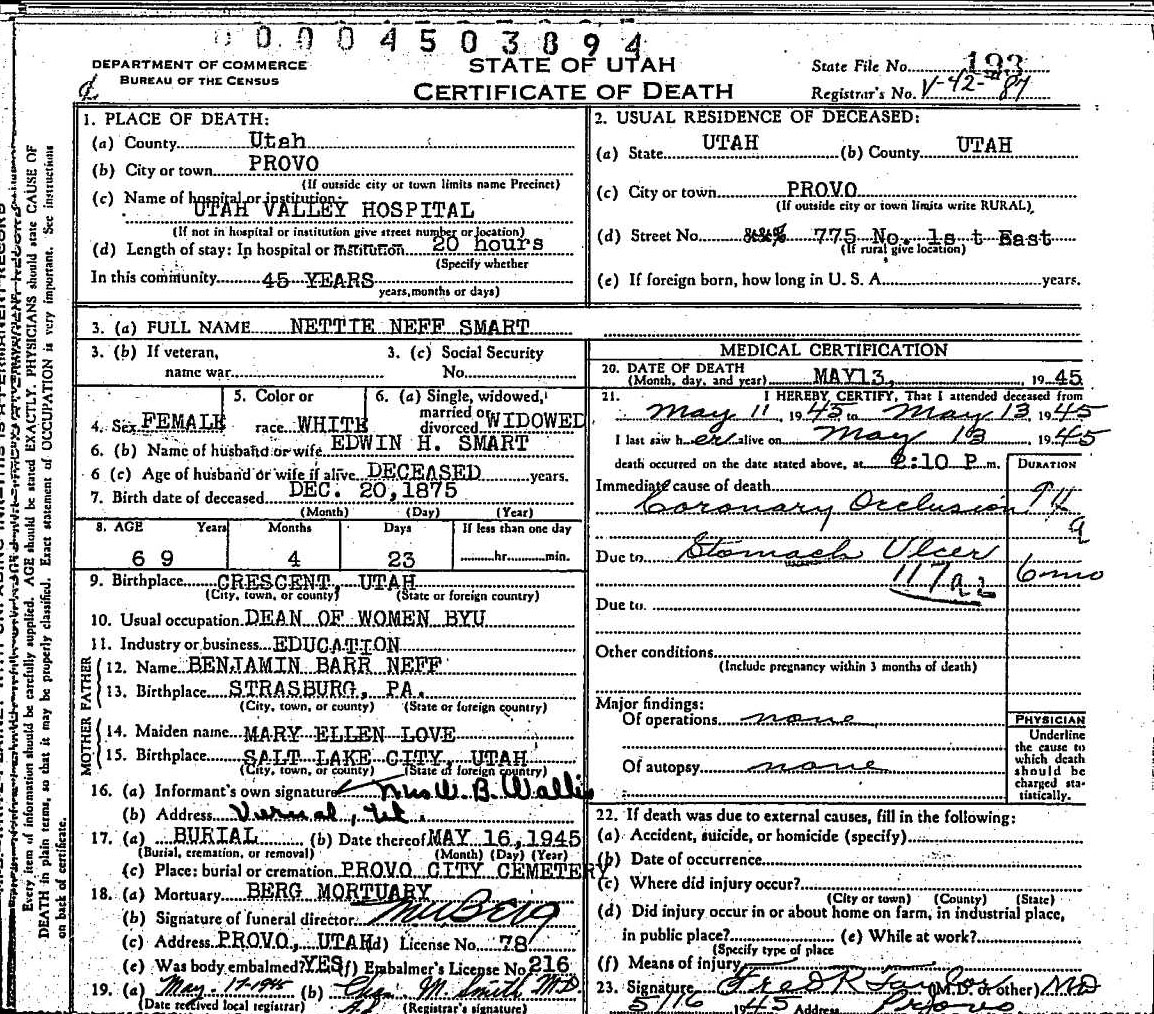 00004503894
DEPARTMENT OF COMMERCE
BUREAU OF THE CENSUS
STATE OF UTAH
CERTIFICATE OF DEATH
State File No. 193
Registrar's No. V-42-87
1. PLACE OF DEATH:
(a) County Utah
(b) City or town PROVO
(If outside city or town limits name Precinct)
(c) Name of hospital or institution:
UTAH VALLEY HOSPITAL
(If not in hospital or institution give street number or location)
(d) Length of stay: In hospital or institution 20 hours
(Specify whether
In this community 45 YEARS
years, months or days)
2. USUAL RESIDENCE OF DECEASED:
(a) State UTAH (b) County UTAH
(c) City or town PROVO
(If outside city or town limits write RURAL)
(d) Street No. 775 No. 1s t East
(If rural give location)
(e) If foreign born, how long in U. S. A. years.
3. (a) FULL NAME NETTIE NEFF SMART
3. (b) If veteran,
name war
3. (c) Social Security
No.
4. Sex FEMALE
5. Color or
race WHITE
6. (a) Single, widowed,
married or
divorced WIDOWED
6. (b) Name of husband or wife EDWIN H. SMART
6 (c) Age of husband or wife if alive DECEASED years.
7. Birth date of deceased DEC. 20,1875
(Month) (Day) (Year)
8. AGE Years Months Days If less than one day
69 4 23 hr. min.
9. Birthplace CRESCENT, UTAH
(City, town, or county) (State or foreign country)
10. Usual occupation DEAN OF WOMEN BYU
11. Industry or business EDUCATION
FATHER
12. Name BENJAMIN BARR NEFF
13. Birthplace STRASBURG, PA.
(City, town, or county) (State or foreign country)
MOTHER
14. Maiden name MARY ELLEN LOVE
15. Birthplace SALT LAKE CITY, UTAH
(City, town, or county) (State of foreign country)
16. (a) Informant's own signature Mrs W. B. Wallis
(b) Address Vernal, Ut.
17. (a) BURIAL (b) Date thereof MAY 16,1945
(Burial, cremation, or removal) (Month) (Day) (Year)
(c) Place: burial or cremation PROVO CITY CEMETERY
18. (a) Mortuary BERG MORTUARY
(b) Signature of funeral director Berg
(c) Address PROVO, UTAH (d) License No. 78
(e) Was body embalmed? YES (f) Embalmer's License No. 216
19. (a) May-17-1945 (b) M. Smith M.D.
(Date received local registrar) (Registrar's signature)
MEDICAL CERTIFICATION
20. DATE OF DEATH
(Month, day, and year) MAY13, 1945
21. I HEREBY CERTIFY, That I attended deceased from
May 11, 1945 to May 13 1945
I last saw her alive on May 13 1945
death occurred on the date stated above, at 2:10 P m.
DURATION
Immediate cause of death
Coronary Occlusion
Due to Stomach Ulcer
6 mo
Due to
Other conditions
(Include pregnancy within 3 months of death)
Major findings:
Of operations none
Of autopsy none
PHYSICIAN
Underline
the cause to
which death
should be
charged sta-
tistically.
22. If death was due to external causes, fill in the following:
(a) Accident, suicide, or homicide (specify)
(b) Date of occurrence
(c) Where did injury occur?
(City or town) (County) (State)
(d) Did injury occur in or about home on farm, in industrial place,
in public place? (e) While at work?
(Specify type of place
(f) Means of injury
23. Signature Fred R Taylor (M.D. or other) MD
5/16 1945 Address Provo
Every item of information should be carefully supplied. AGE should be stated EXACTLY. PHYSICIANS should state CAUSE OF
DEATH in plain terms, so that it may be properly classified. Exact statement of OCCUPATION is very important. See instructions
on back of certificate.